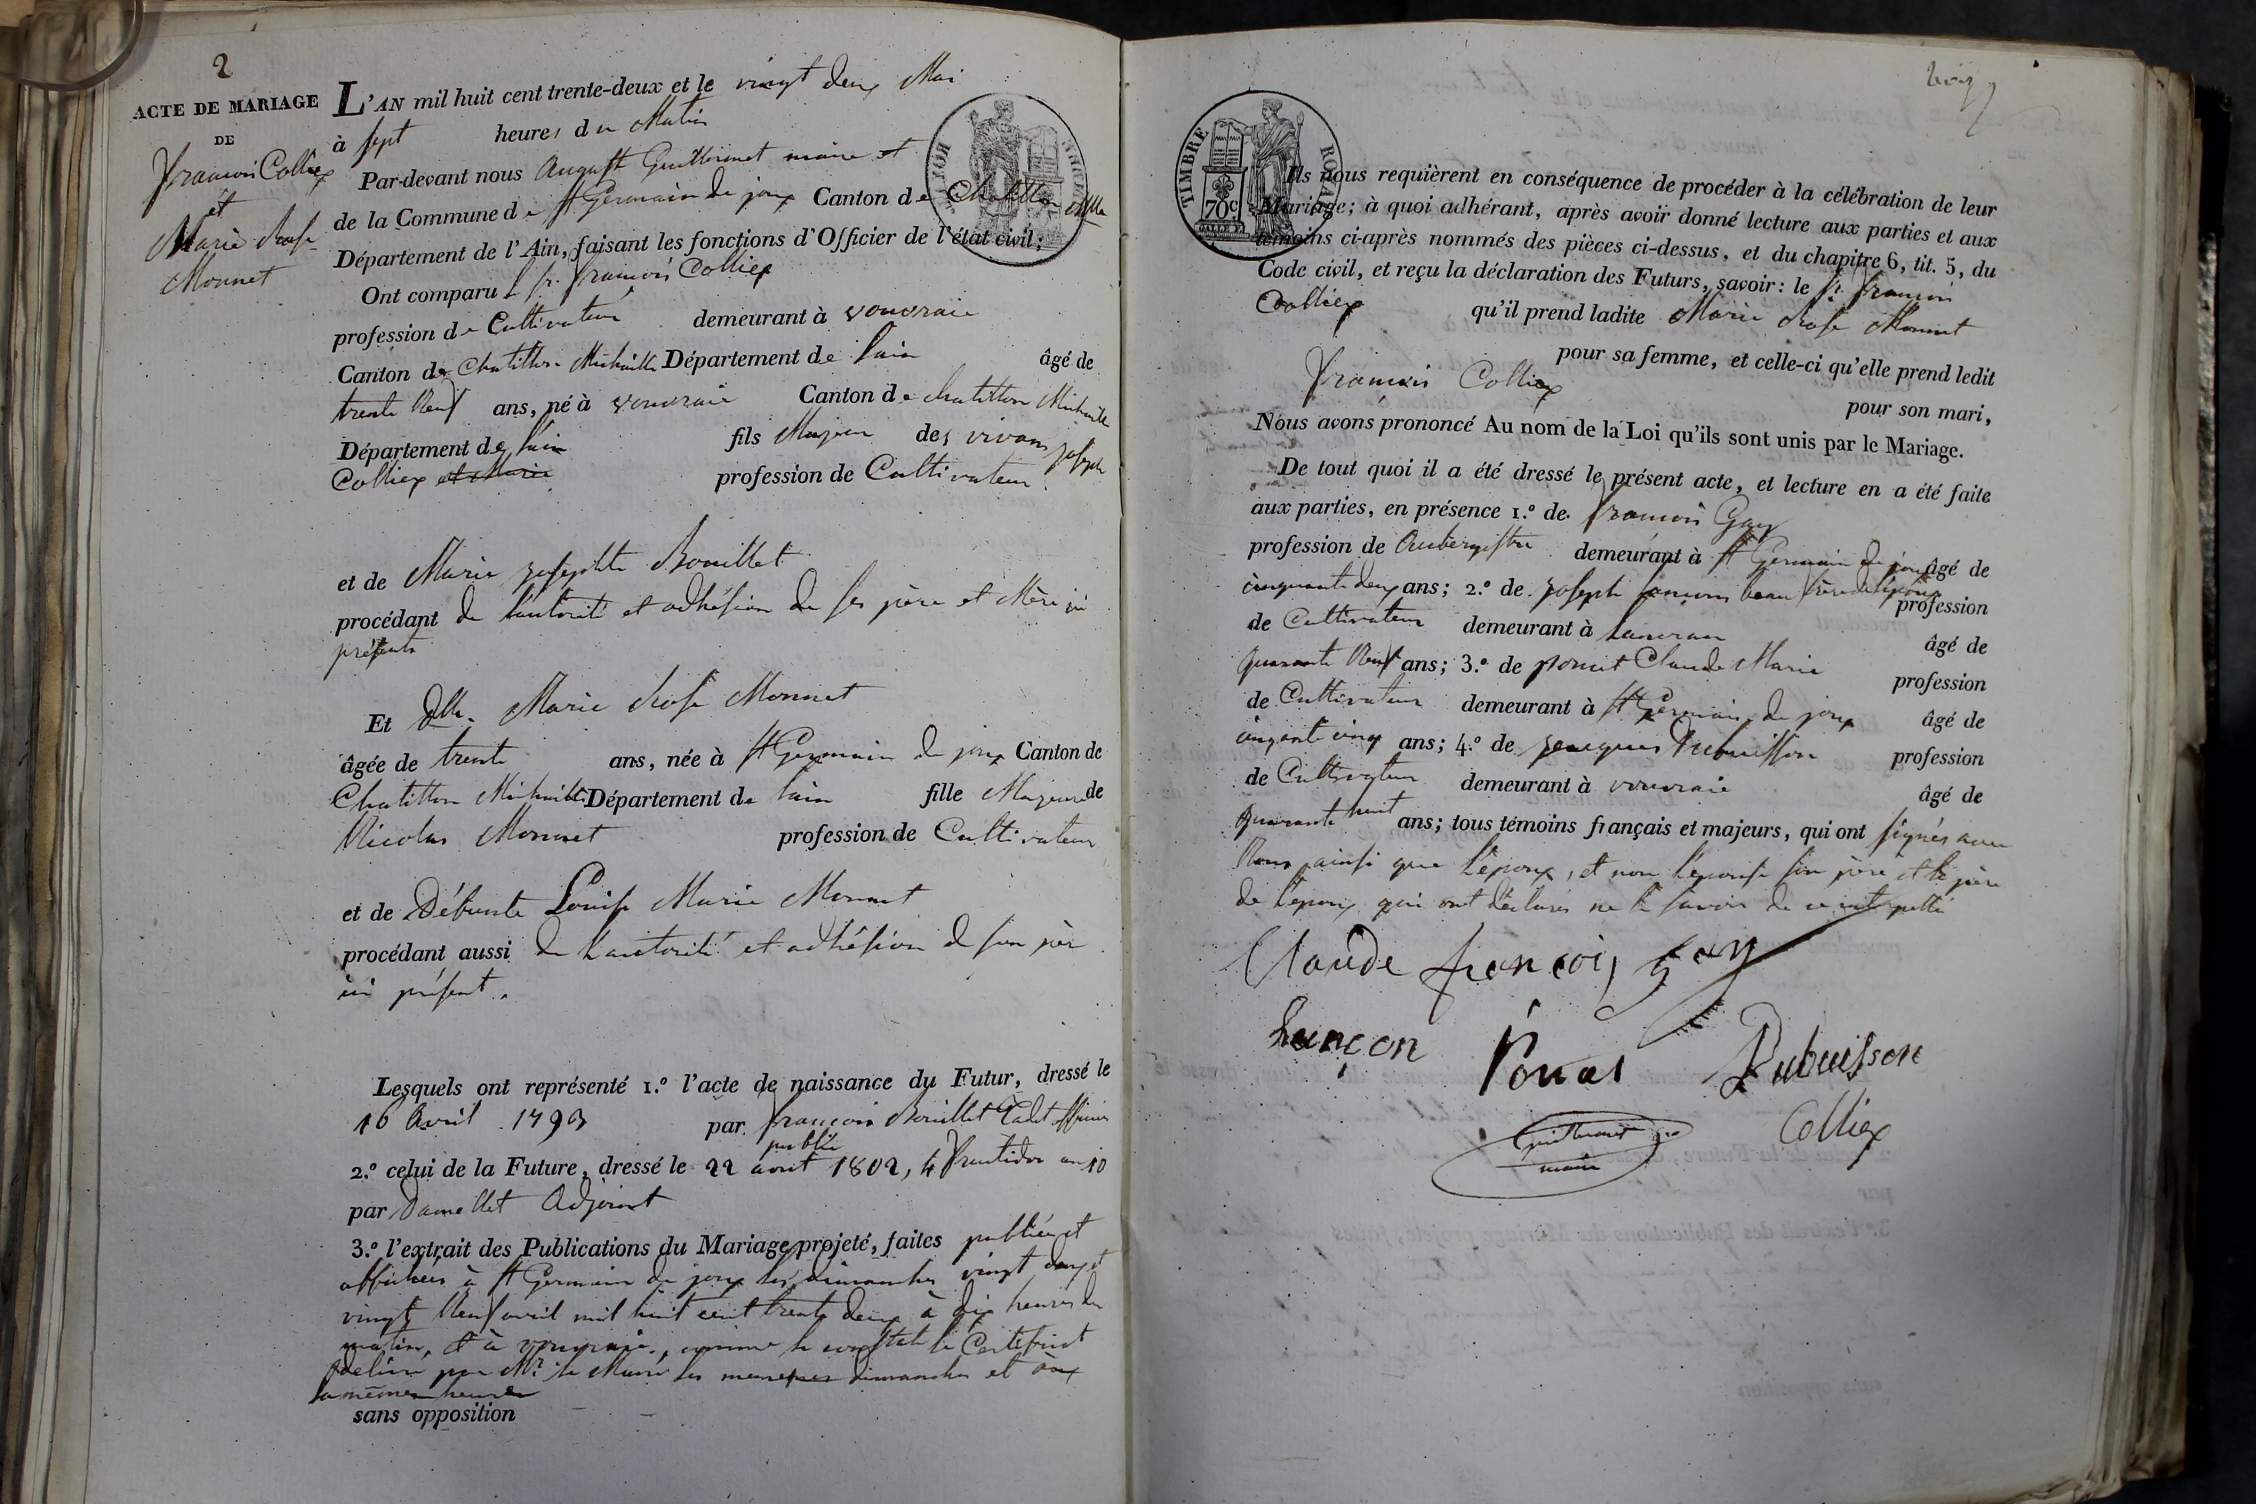 2
ACTE DE MARIAGE
DE
francois Colliex
et
Marie Rose
Monnet
L'AN mil huit cent trente-deux et le vingt deux Mai
à sept heures du Matin
Par-devant nous August Guilliermet maire et
de la Commune de St Germain de joux Canton de Chatillon
Département de l'Ain, faisant les fonctions d'Officier de l'état civil;
Ont comparu le sr. francois Colliex
profession de Cultivateur demeurant à vouvraie
Canton de Chatillon Michaille Département de lain âgé de
trente Neuf ans, né à vouvraie Canton de chatillon Michaille
Département de lain fils Majeur des vivans joseph
Colliex et Marie profession de Cultivateur
et de Marie josephte Bouillet
procédant de lautorité et adhésion de ses père et Mère ici
présents
Et Dlle. Marie Rose Monnet
âgée de trente ans, née à St Germain de joux Canton de
Chatillon Michaille Département de lain fille Majeure de
Nicolas Monnet profession de Cultivateur
et de Défunte Louise Marie Monnet
procédant aussi de l'autorité et adhésion de son père
ici présent.
Lesquels ont représenté 1.º l'acte de naissance du Futur, dressé le
16 Avril 1793 par francois Bouillet Cadet officier
public
2.º celui de la Future, dressé le 22 aout 1802, 4 fructidor an 10
par Adjoint
3.º l'extrait des Publications du Mariage projeté, faites publiées et
affichées à St Germain de joux les dimanches vingt deux et
vingt Neuf avril mil huit cent trente deux à dix heures du
matin, et à vouvraie, comme le constate le Certificat
délivré par Mr. le Maire les mêmes dimanches et aux
mêmes heures
sans opposition
TIMBRE ROYAL
70c
Ils nous requièrent en conséquence de procéder à la célébration de leur
Mariage; à quoi adhérant, après avoir donné lecture aux parties et aux
témoins ci-après nommés des pièces ci-dessus, et du chapitre 6, tit. 5, du
Code civil, et reçu la déclaration des Futurs, savoir: le sr. francois
Colliex qu'il prend ladite Marie Rose Monnet
pour sa femme, et celle-ci qu'elle prend ledit
francois Colliex
pour son mari,
Nous avons prononcé Au nom de la Loi qu'ils sont unis par le Mariage.
De tout quoi il a été dressé le présent acte, et lecture en a été faite
aux parties, en présence 1.º de francois Gay
profession de Aubergiste demeurant à St Germain de joux âgé de
cinquante deux ans; 2.º de joseph Lançons beau frère de l'époux profession
de Cultivateur demeurant à âgé de
quarante Neuf ans; 3.º de poncet Claude Marie profession
de Cultivateur demeurant à St Germain de joux âgé de
cinqante cinq ans; 4.º de jeacques Dubuisson profession
de Cultivateur demeurant à vouvraie âgé de
quarante huit ans; tous témoins français et majeurs, qui ont signés avec
Nous ainsi que l'époux, et non l'épouse son père et le père
de l'époux qui ont déclarés ne le savoir de ce interpellé
Claude françois gay
Lançon Poncet Dubuisson
Guilliermet Colliex
maire